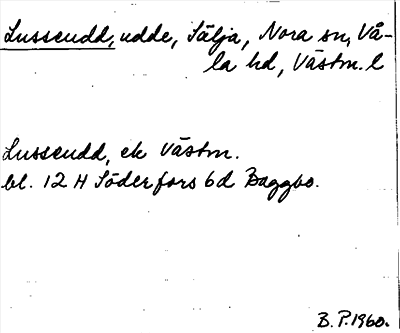 Lussudd, udde, Sälja, Nora sn, Vå-
la hd, Västm. l
Lussudd, ek Västm.
bl. 12 H Söderfors 6d Baggbo.
B.P. 1960.